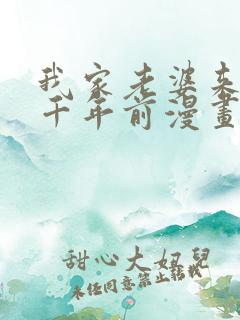 我家老婆来
千年前漫畫
甜心大妞兒
未经同意禁止转载